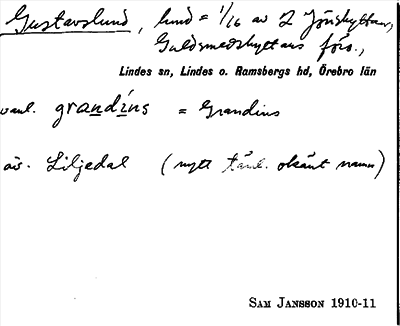 Gustavslund, lund = 1/16 av 2 Jönshyttan,
Guldsmedshyttans förs.,
Lindes sn, Lindes o. Ramsbergs hd, Örebro län
vanl. grandíns = Grandins
äv. Liljedal (nytt okänt namn)
SAM JANSSON 1910-11